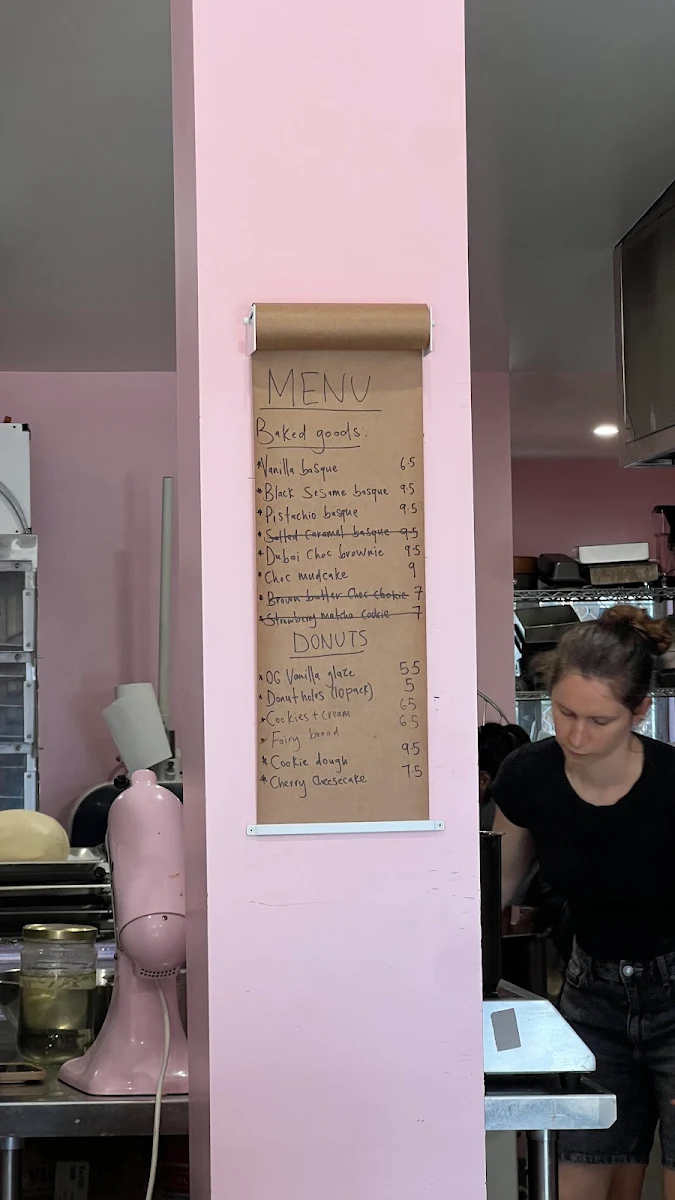 MENU
Baked goods:
*Vanilla basque 6.5
*Black Sesame basque 9.5
*Pistachio basque 9.5
*Salted Caramel basque 9.5
*Dubai Choc brownie 9.5
*Choc mudcake 9
*Brown butter Choc Cookie 7
*Strawberry matcha Cookie 7
DONUTS
*OG Vanilla glaze 5.5
*Donut holes (10 pack) 5
*Cookies + cream 6.5
*Fairy bread 6.5
*Cookie dough 9.5
*Cherry Cheesecake 7.5